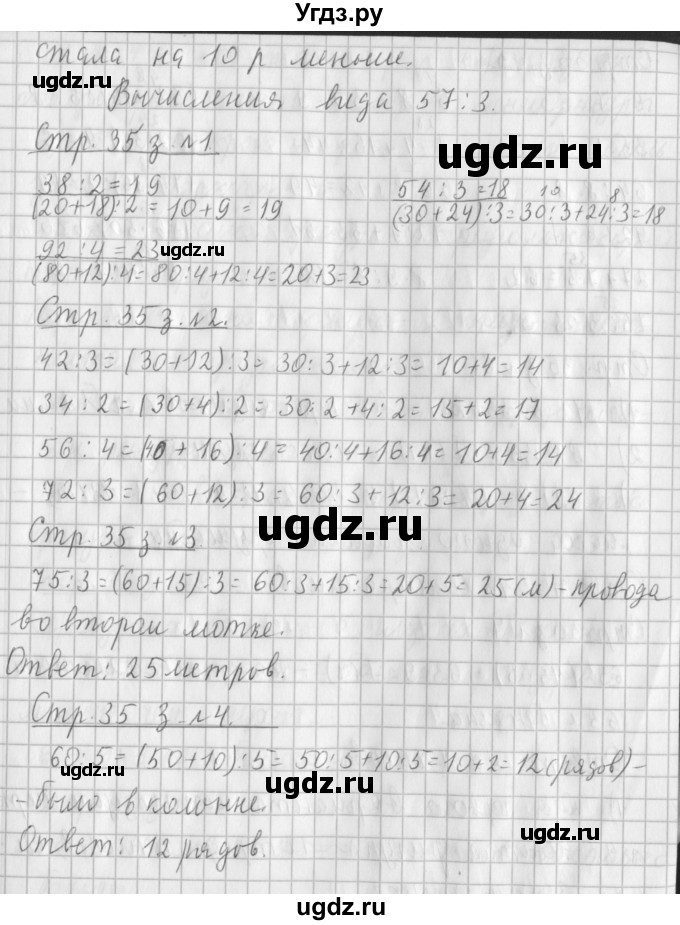 Угдз.ру
стала на 10 р меньше.
ugdz.ru
Вычисления вида 57:3.
ugdz.ru
Стр. 35 з. №1.
38:2=19
54:3=18 10 8
(20+18):2=10+9=19
(30+24):3=30:3+24:3=18
92:4=23
ugdz.ru
(80+12):4=80:4+12:4=20+3=23
Стр. 35 з. №2.
42:3=(30+12):3=30:3+12:3=10+4=14
34:2=(30+4):2=30:2+4:2=15+2=17
56:4=(40+16):4=40:4+16:4=10+4=14
72:3=(60+12):3=60:3+12:3=20+4=24
ugdz.ru
Стр. 35 з №3
75:3=(60+15):3=60:3+15:3=20+5=25(м)-провода
во втором мотке.
Ответ: 25 метров.
ugdz.ru
Стр. 35 з №4.
60:5=(50+10):5=50:5+10:5=10+2=12(рядов)-
ugdz.ru
-было в колонне.
ugdz.ru
Ответ: 12 рядов.
ugdz.ru
ugdz.ru